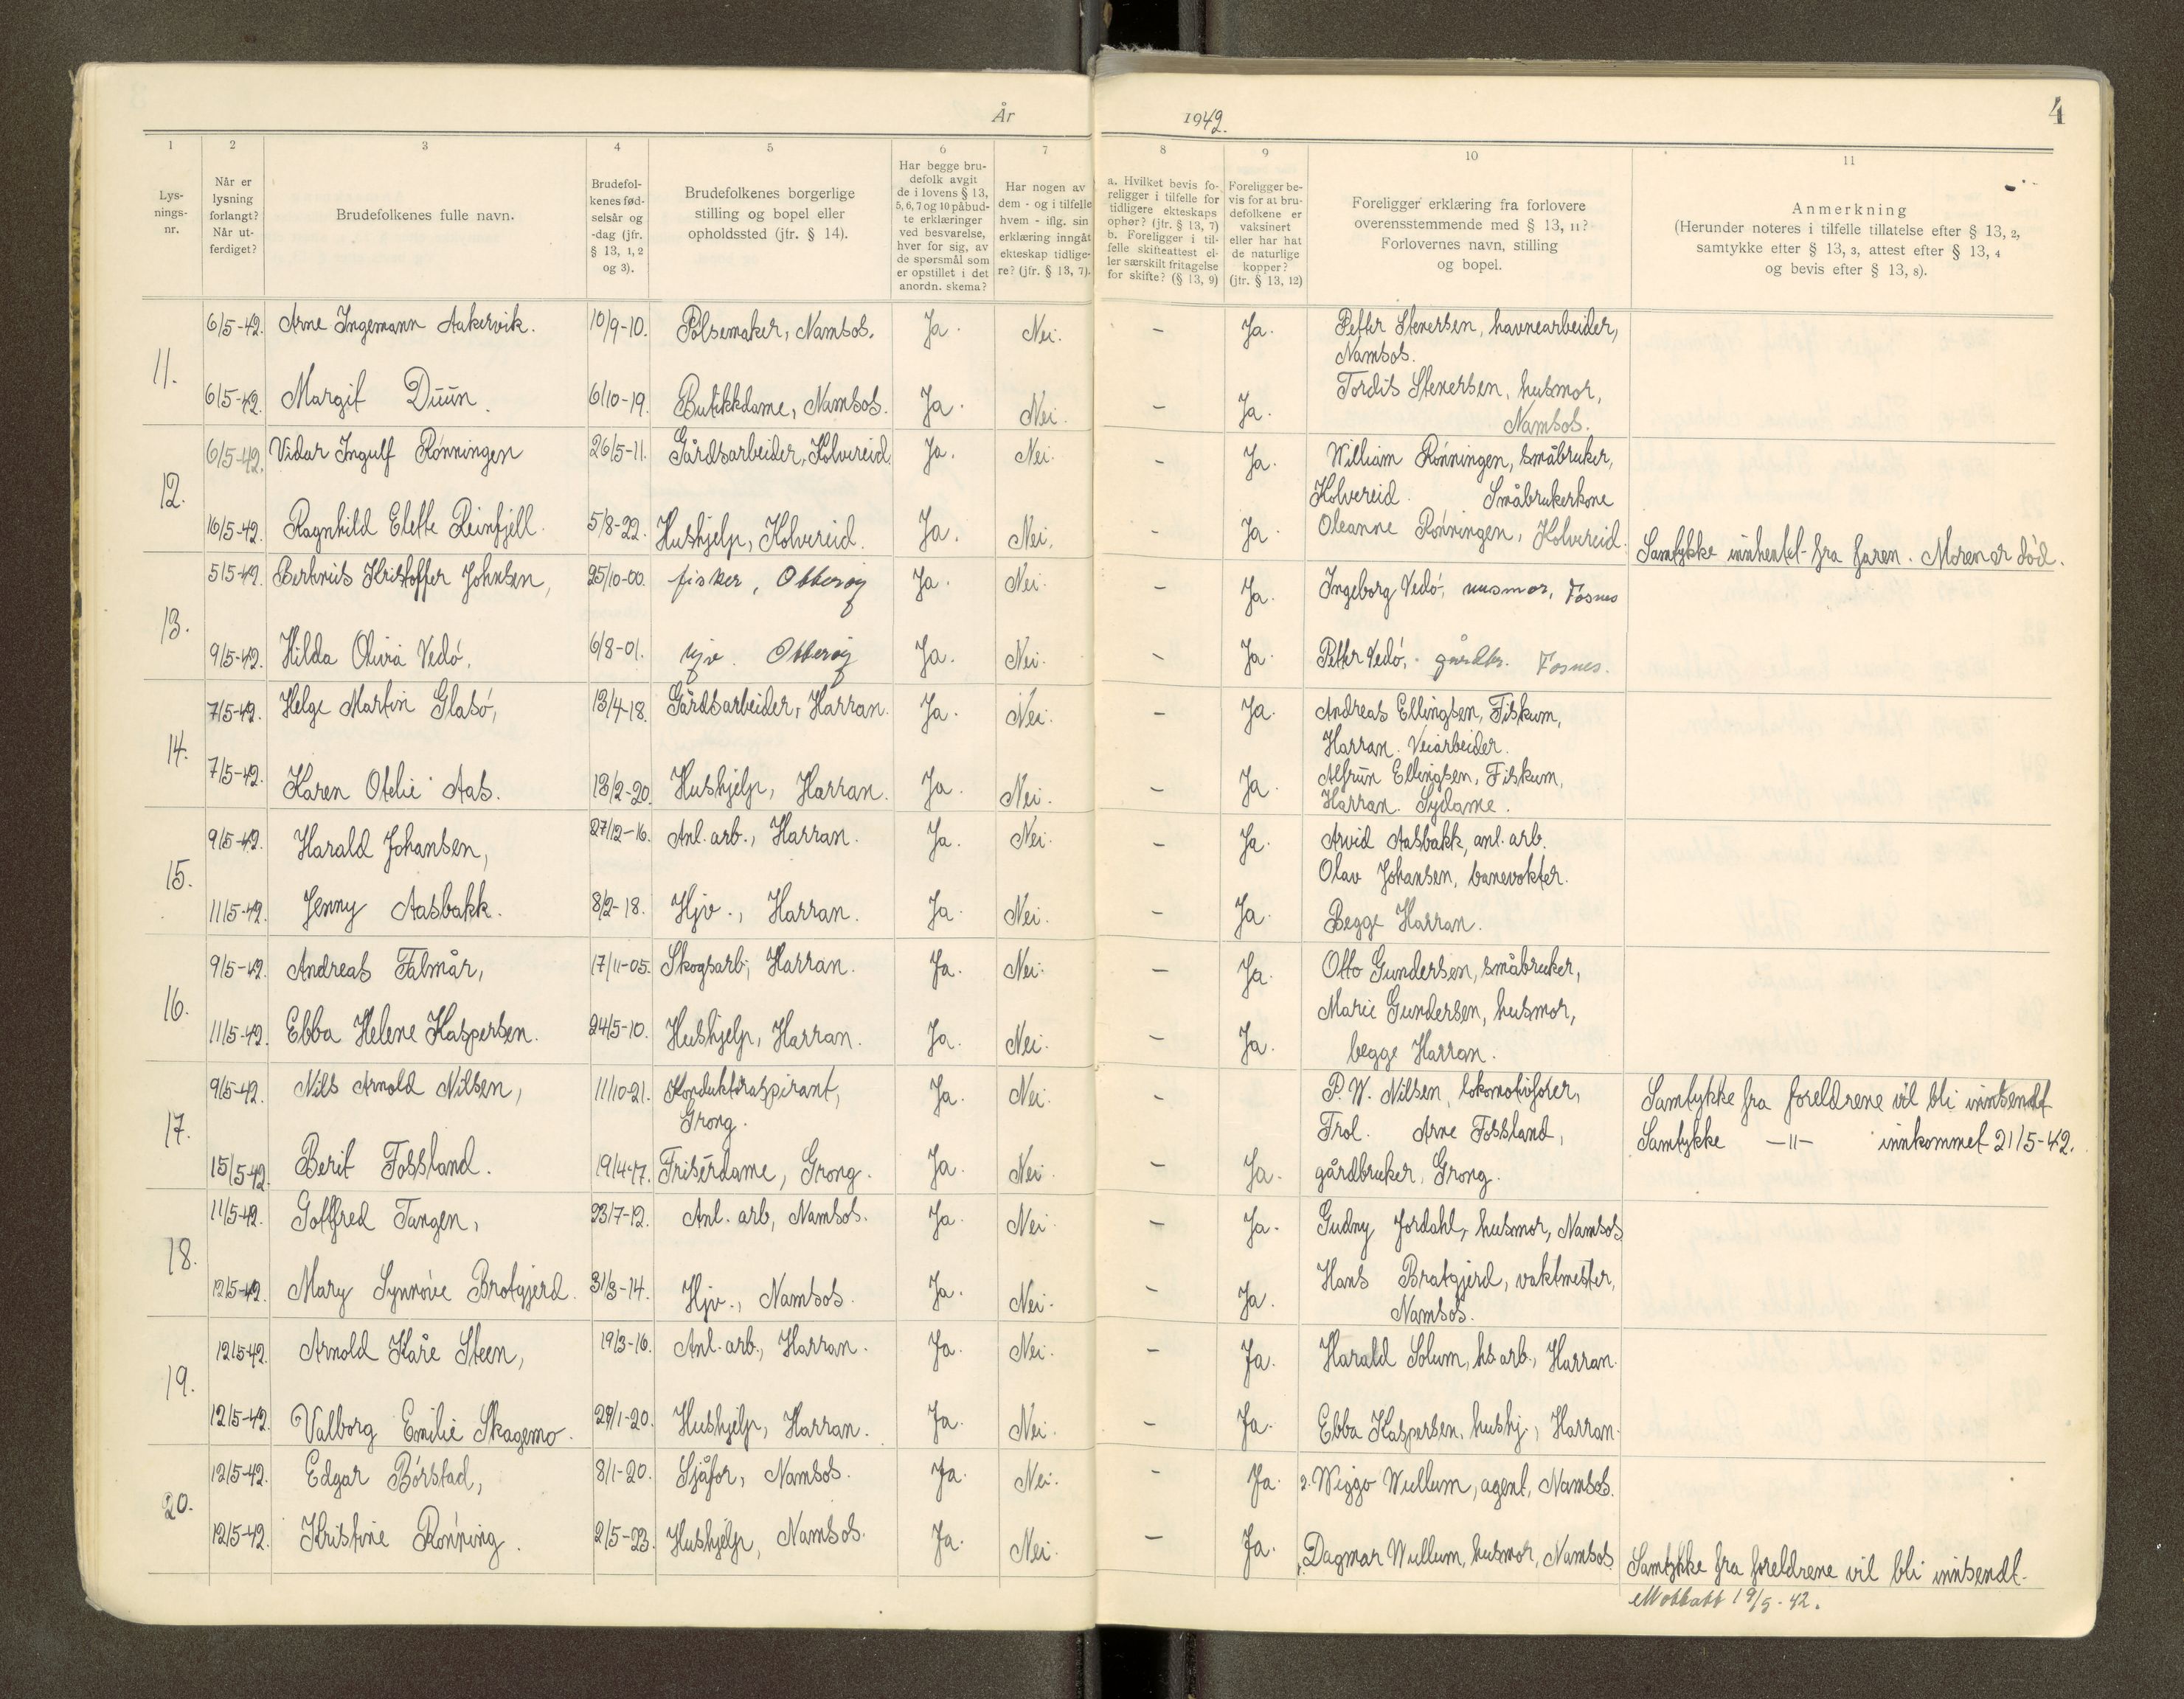 År 1942.
4
1 2 3 4 5 6 7 8 9 10 11
Lys-
nings-
nr.
Når er
lysning
forlangt?
Når ut-
ferdiget?
Brudefolkenes fulle navn.
Brudefol-
kenes fød-
selsår og
-dag (jfr.
§ 13, 1, 2
og 3).
Brudefolkenes borgerlige
stilling og bopel eller
opholdssted (jfr. § 14).
Har begge bru-
defolk avgit
de i lovens § 13,
5, 6, 7 og 10 påbud-
te erklæringer
ved besvarelse,
hver for sig, av
de spørsmål som
er opstillet i det
anordn. skema?
Har nogen av
dem - og i tilfelle
hvem - iflg. sin
erklæring inngåt
ekteskap tidlige-
re? (jfr. § 13, 7).
a. Hvilket bevis fo-
religger i tilfelle for
tidligere ekteskaps
ophør? (jfr. § 13, 7)
b. Foreligger i til-
felle skifteattest el-
ler særskilt fritagelse
for skifte? (§ 13, 9)
Foreligger be-
vis for at bru-
defolkene er
vaksinert
eller har hat
de naturlige
kopper?
(jfr. § 13, 12)
Foreligger erklæring fra forlovere
overensstemmende med § 13, 11?
Forlovernes navn, stilling
og bopel.
Anmerkning
(Herunder noteres i tilfelle tillatelse efter § 13, 2,
samtykke efter § 13, 3, attest efter § 13, 4
og bevis efter § 13, 8).
11.
6/5-42. Arne Ingemann Aakervik. 10/9-10. Pølsemaker, Namsos. Ja. Nei. – Ja. Petter Stenersen, havnearbeider,
Namsos.
6/5-42. Margit Duun. 6/10-19. Butikkdame, Namsos. Ja. Nei. – Ja. Tordis Stenersen, husmor,
Namsos.
12.
6/5-42. Vidar Ingulf Rønningen 26/5-11. Gårdsarbeider, Kolvereid. Ja. Nei. – Ja. William Rønningen, småbruker,
Kolvereid. Småbrukerkone
16/5-42. Ragnhild Elette Reinfjell. 5/8-22. Hushjelp, Kolvereid. Ja. Nei. – Ja. Oleanne Rønningen, Kolvereid. Samtykke innhentet fra faren. Moren er død.
13.
5/5-42. Berknus Kristoffer Johnsen, 25/10-00. fisker, Otterøy Ja. Nei. – Ja. Ingeborg Vedø, husmor, Fosnes
9/5-42. Hilda Olivia Vedø, 6/8-01. hjv. Otterøy Ja. Nei. – Ja. Petter Vedø, gårdbr. Fosnes.
14.
7/5-42. Helge Martin Glasø, 13/4-18. Gårdsarbeider, Harran. Ja. Nei. – Ja. Andreas Ellingsen, Fiskum,
Harran. Veiarbeider.
7/5-42. Karen Otelie Aas. 13/2-20. Hushjelp, Harran. Ja. Nei. – Ja. Alfrun Ellingsen, Fiskum,
Harran. Sydame.
15.
9/5-42. Harald Johansen, 27/12-16. Anl. arb., Harran. Ja. Nei. – Ja. Arvid Aasbakk, anl. arb.
Olav Johansen, banevokter.
11/5-42. Jenny Aasbakk. 8/2-18. Hjv., Harran. Ja. Nei. – Ja. Begge Harran.
16.
9/5-42. Andreas Falmår, 17/11-05. Skogsarb, Harran. Ja. Nei. – Ja. Otto Gundersen, småbruker,
Marie Gundersen, husmor,
11/5-42. Ebba Helene Kaspersen. 24/5-10. Hushjelp, Harran. Ja. Nei. – Ja. begge Harran.
17.
9/5-42. Nils Arnold Nilsen, 11/10-21. Konduktøraspirant,
Grong. Ja. Nei. – P. W. Nilsen, lokomotivfører, Samtykke fra foreldrene vil bli innsendt
Frol. Arne Fossland, Samtykke —"— innkommet 21/5-42.
15/5-42. Berit Fossland. 19/4-17. Frisérdame, Grong. Ja. Nei. – Ja. gårdbruker, Grong.
18.
11/5-42. Gottfred Tangen, 23/7-12. Anl. arb, Namsos. Ja. Nei. – Ja. Gudny Jordahl, husmor, Namsos
12/5-42. Mary Synnøve Brotgjerd. 31/3-14. Hjv., Namsos. Ja. Nei. – Ja. Hans Bratgjerd, vaktmester,
Namsos.
19.
12/5-42. Arnold Kåre Steen, 19/3-16. Anl. arb., Harran. Ja. Nei. – Ja. Harald Solum, hs arb., Harran.
12/5-42. Valborg Emilie Skagemo. 29/1-20. Hushjelp, Harran. Ja. Nei. – Ja. Ebba Kaspersen, hushj., Harran.
20.
12/5-42. Edgar Børstad, 8/1-20. Sjåfør, Namsos. Ja. Nei. – Ja. 2. Wiggo Wullum, agent, Namsos.
12/5-42. Kristine Rønning. 2/5-23. Hushjelp, Namsos. Ja. Nei. – Ja. 1. Dagmar Wullum, husmor, Namsos. Samtykke fra foreldrene vil bli innsendt.
Mottatt 19/5-42.